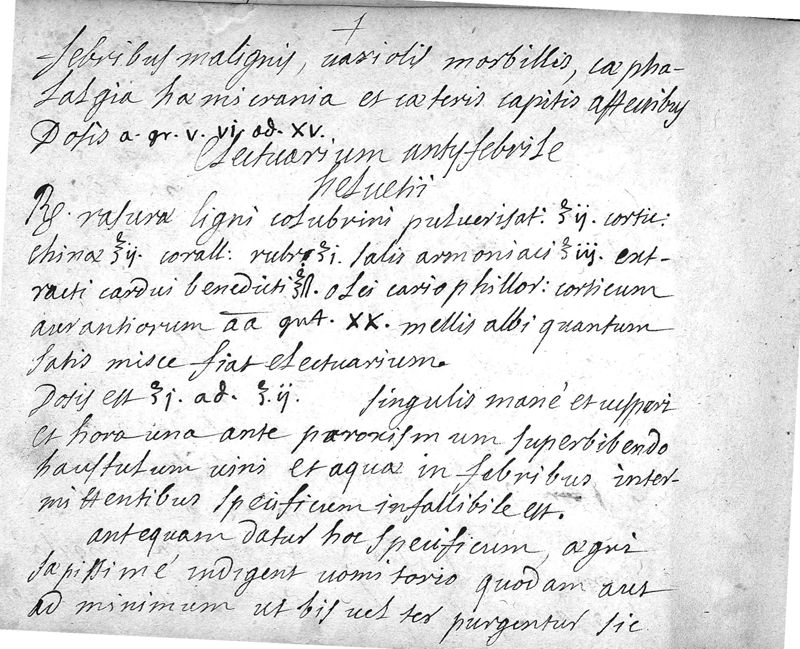 febribus malignis, variolis morbillis, cæpha-
lalgia hæmicrania et cæteris capitis affectibus
Dosis a. gr. v. vi. ad. xv.
Electuarium antyfebrile
helvetii
℞. rasuræ ligni colubrini pulverisat: ʒij. cortic:
chinæ ℥ij. corall: rubr: ʒi. salis armoniaci ʒiij. ext-
racti cardui benedicti ℥ß. olei cariophillor: corticum
aurantiorum āā gut. XX. mellis albi quantum
satis misce fiat electuarium.
Dosis est ʒj. ad. ʒ.ij. singulis manè et vesperi
et hora una ante paroxismum superbibendo
haustulum vini et aquæ in febribus inter-
mittentibus specificum infallibile est.
antequam datur hoc specificum, ægri
sæpissimè indigent vomitorio quodam aut
ad minimum ut bis vel ter purgentur sic